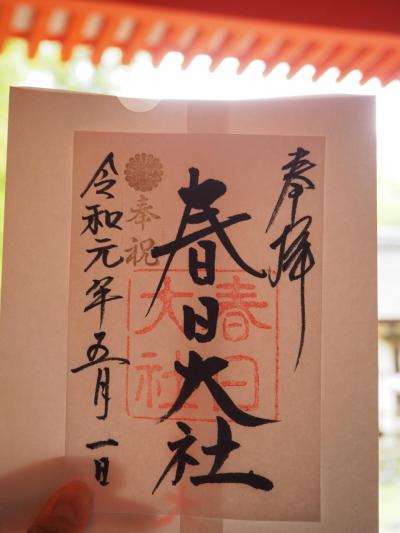 奉拝
春日大社
春日
大社
奉祝
令和元年五月一日